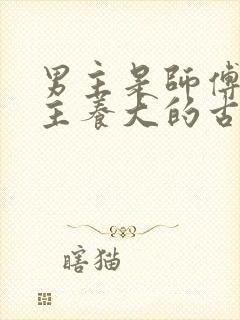 男主是師傅
主養大的古
瞎猫